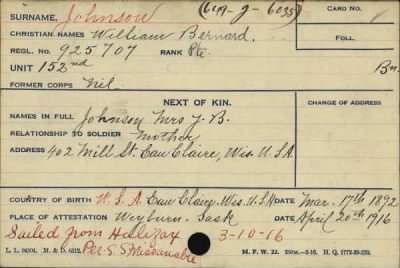 SURNAME. Johnson (649-J-6035) CARD NO.
CHRISTIAN NAMES William Bernard. FOLL.
REGL. NO. 925707 RANK Pte.
UNIT 152nd Bn.
FORMER CORPS Nil.
NEXT OF KIN. CHANGE OF ADDRESS
NAMES IN FULL Johnson Mrs J. B.
RELATIONSHIP TO SOLDIER Mother
ADDRESS 402 Mill St. Eau Claire, Wis. U.S.A
COUNTRY OF BIRTH U.S.A. Eau Claire. Wis. U.S.A DATE Mar. 17th 1892
PLACE OF ATTESTATION Weyburn. Sask DATE April 20th 1916
Sailed from Halifax 3-10-16
Per S.S Missanabie
L. L. M. & D. M. F. W. 22. H. Q. 1772-39-239.